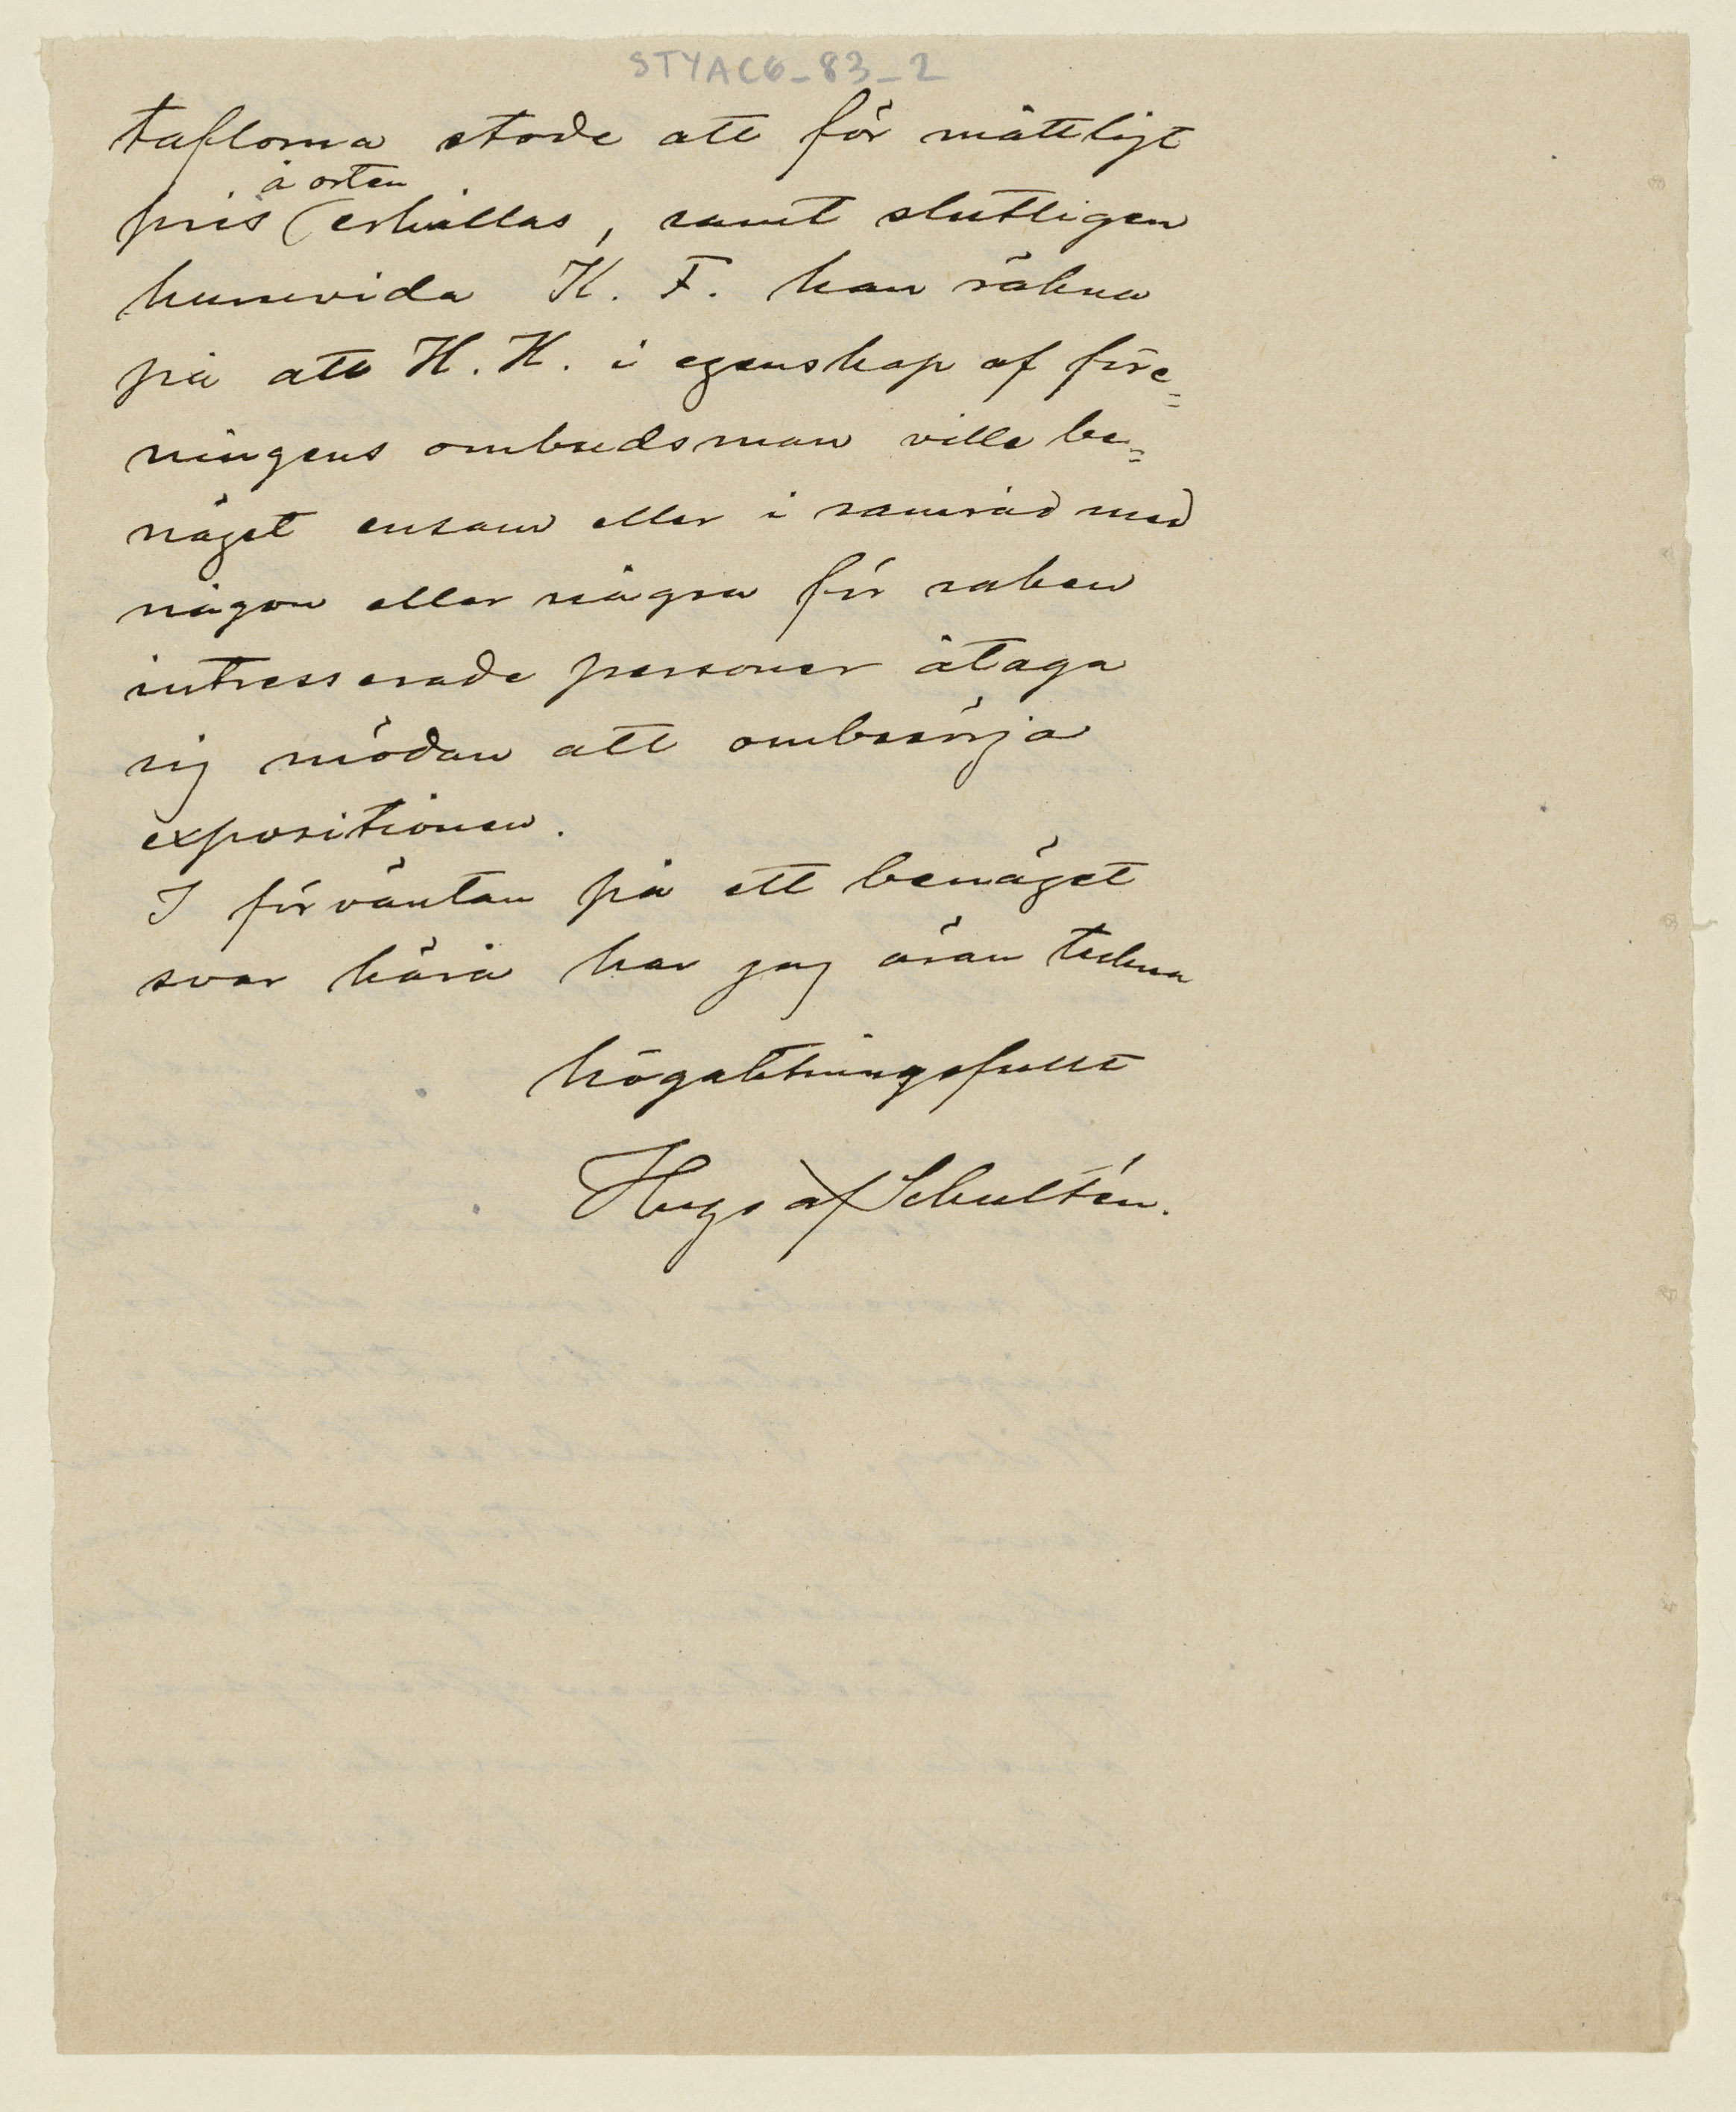 STYAC6_83_2
taflorna stode att för måttligt
å orten
pris (erhållas, samt slutligen
hurvida K. F. kan räkna
på att H. H. i egenskap af före=
ningens ombudsman ville be=
näget ensam eller i samråd med
någon eller några för saken
intresserade personer åtaga
sig mödan att ombesörja
expositionen.
I förväntan på ett benäget
svar härå har jag äran teckna
högaktningsfullt
Hugo af Schultén.